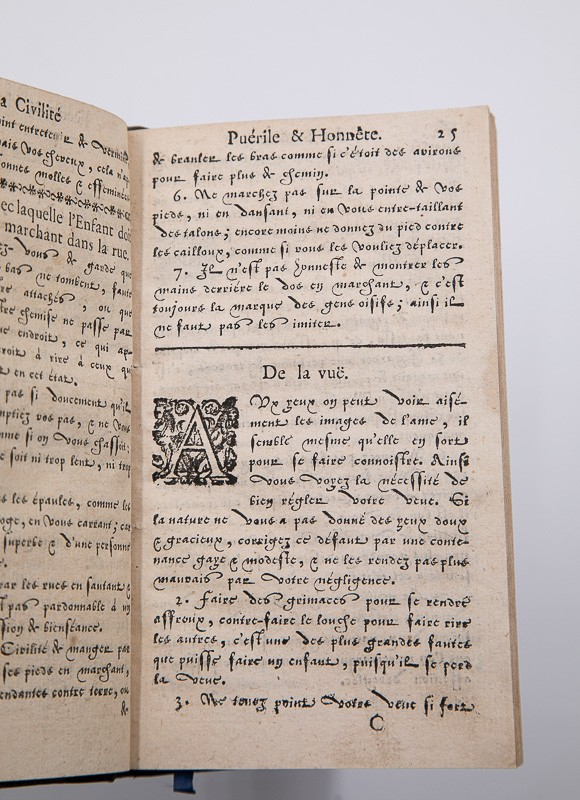 a Civilité
oint entretenir & vermine
vais vos cheveux, cela n'ap
sonnes molles & efféminées
ec laquelle l'Enfant doit
marchant dans la rue.
vous de garde que
bas ne tombent, faute
tre attachés, ou que
tre chemise ne passe par
ue endroit, ce qui ap-
roit à rire à ceux qui
t en cet état.
pas si doucement qu'il
mptiez vos pas, & ne vous
me si on vous chassoit;
e soit ni trop lent, ni trop
es les épaules, comme les
loge, en vous carrant; car
superbe & d'une personne
par les rues en sautant &
t pas pardonnable à un
sion de bienséance.
Civilité de manger par
ses pieds en marchant,
endantes contre terre, ou
&
Puérile & Honnête. 25
de branler les bras comme si c'étoit des avirons
pour faire plus de chemin.
6. Ne marchez pas sur la pointe de vos
pieds, ni en dansant, ni en vous entre-taillant
des talons; encore moins ne donnez du pied contre
les cailloux, comme si vous les vouliez déplacer.
7. Il n'est pas honneste de montrer les
mains derrière le dos en marchant, & c'est
toujours la marque des gens oisifs; ainsi il
ne faut pas les imiter.
De la vuë.
AUx yeux on peut voir aisé-
ment les images de l'ame, il
semble mesme qu'elle en sort
pour se faire connoistre. Ainsi
vous voyez la nécessité de
bien régler votre veue. Si
la nature ne vous a pas donné des yeux doux
& gracieux, corrigez ce défaut par une conte-
nance gaye & modeste, & ne les rendez pas plus
mauvais par votre négligence.
2. Faire des grimaces pour se rendre
affreux, contre-faire le louche pour faire rire
les autres, c'est une des plus grandes fautes
que puisse faire un enfant, puisqu'il se perd
la veue.
3. Ne tenez point votre veue si fort
C